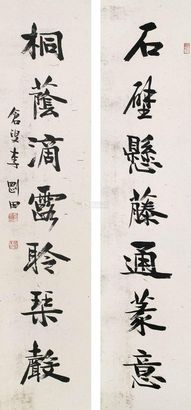 石壁懸藤通篆意
桐蔭滴露聆琴聲
李剛田